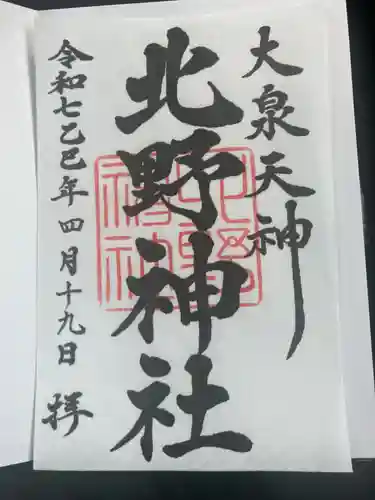 大泉天神
北野神社
令和七乙巳年四月十九日 拝
北野神社